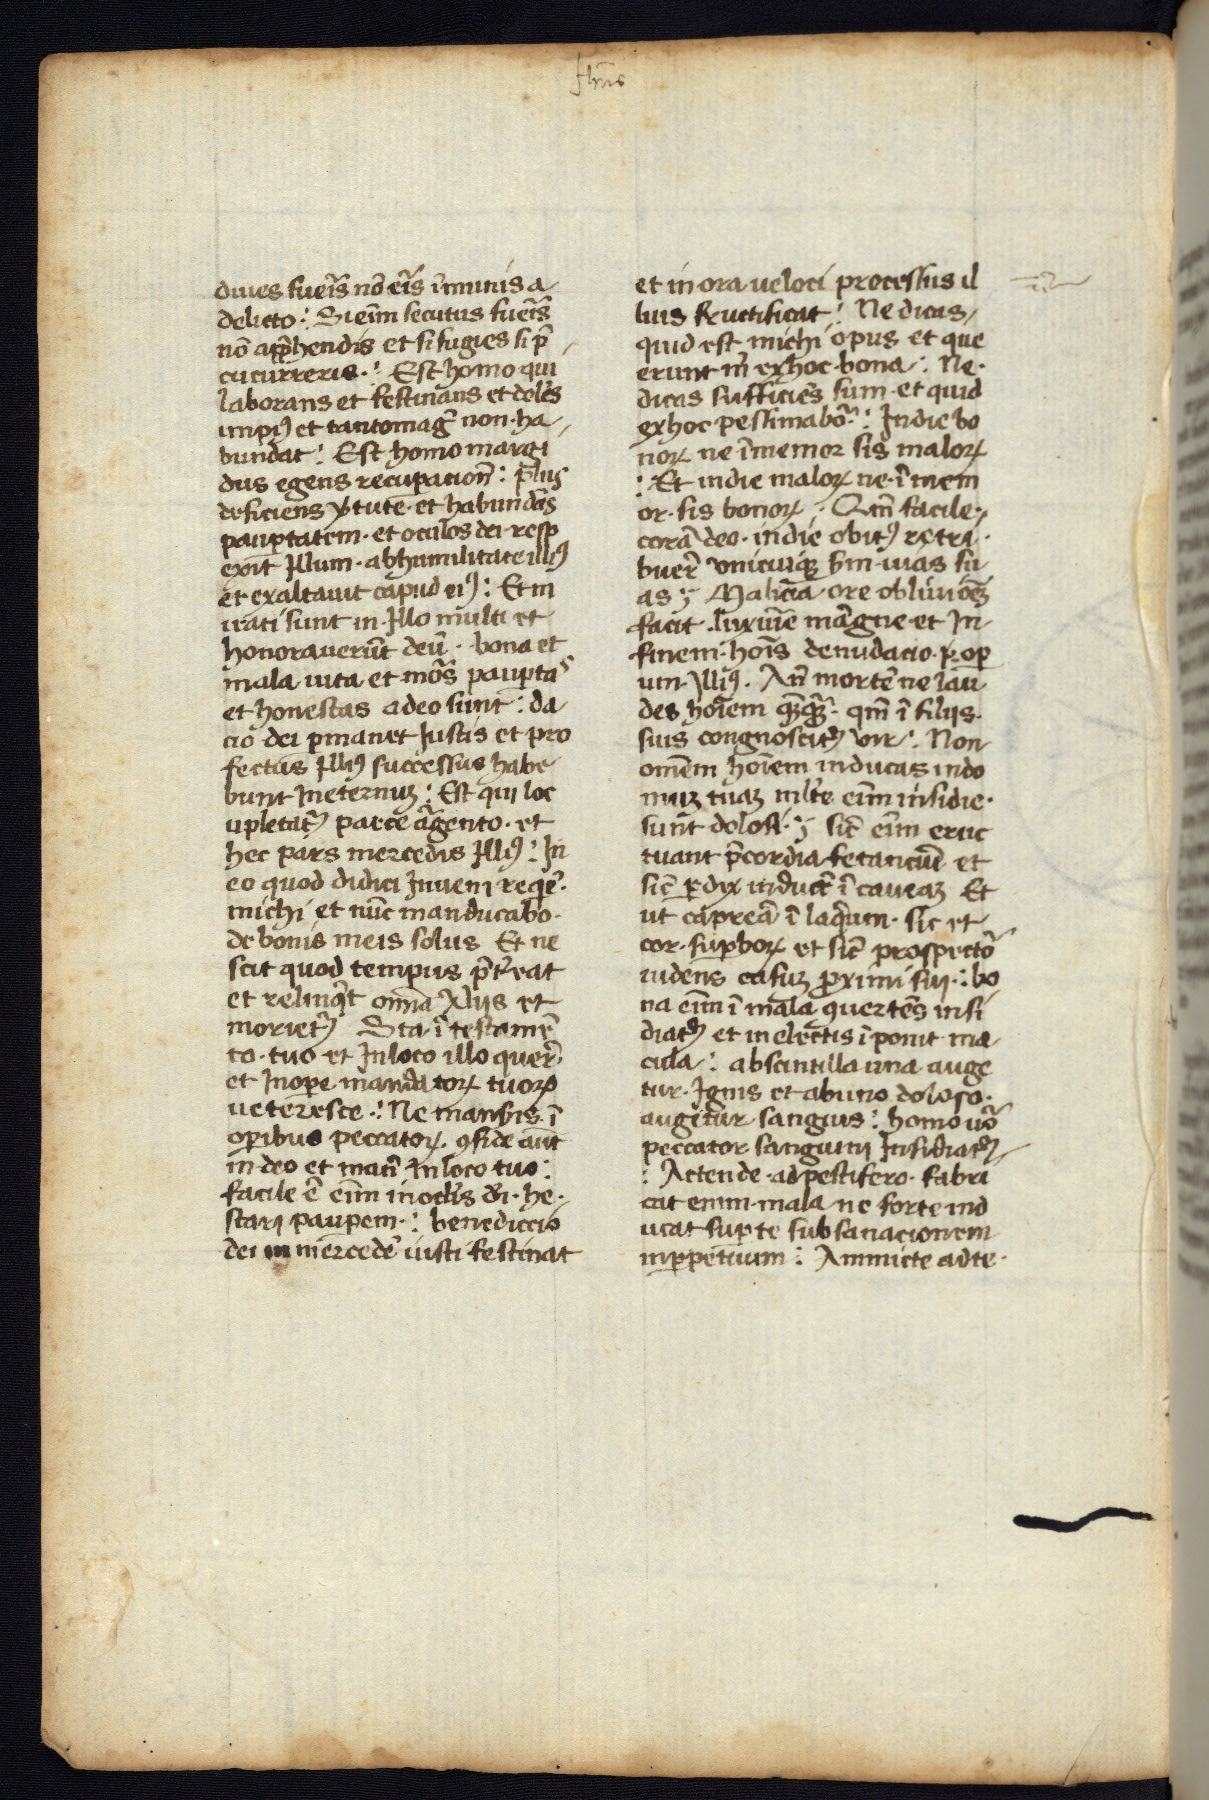 diues fueĩs nõ eĩs ĩmunis a
delicto : Si eĩm secutus fueĩs
nõ app̃hendis et si fugies si p̃
cucurreris : Est homo qui
laborans et festinans et dolẽs
impiꝰ et tanto mag̃ non ha
bundat : Est homo marci
dus egens recupacioñ : plus
deficiens v̾tute et habundãs
paup̲tatem · et oculos dei resp
exit Jllum · ab humilitate illiꝰ
et exaltauit capud eiꝰ : Et m
irati sunt in Jllo multi et
honorauerũt deũ · bona et
mala uita et mõs paup̲tas
et honestas a deo sunt : da
cio dei p̲manet Justis et pro
fectus Jlliꝰ successus habe
bunt Jn eternuꝫ : Est qui loc
upletat᷑ parcẽ agẽnto · et
hec pars mercedis Jlliꝰ : Jn
eo quod didici Jnueni reqẽ ·
michi et nũc manducabo ·
de bonis meis solus Et ne
scit quod tempus p̃t̾eat
et relinq̃t om̃ia Aliis et
moriet᷑ Sta ĩ testamẽ
to · tuo et Jn loco illo quer̃
et Jn ope mandatoꝝ tuoꝝ
ueteresce : Ne mans̾is ĩ
op̲ibus peccatoꝝ · ꝯfide aũt
in deo et mañ Jn loco tuo :
facile ẽ eĩm in oclĩs dĩ · ho
stari paup̲em : benediccio
dei in mercedẽ iusti festinat
et in ora ueloci processus il
lius fructificat : Ne dicas
quid est michi opus et que
erunt m̃ ex hoc bona : Ne ·
dicas sufficiẽs sum et quid
ex hoc pessimabõ : Jn die bo
noꝝ ne ĩmemor sis maloꝝ
: Et in die maloꝝ ne ĩmem
or sis bonoꝝ · Qm̃ facile
corã deo · in die obitꝰ retri
buer̃ vnicuiqꝫ s̾m uias su
as ; Malicia ore obliuiõeꝫ
facit luxurie mãgne et Jn
finem hoĩs denudacio op
um Jlliꝰ · An̄ mortẽ ne lau
des hoĩem q̃ꝫq̃ · qm̃ ĩ filijs
suis congnoscit᷑ vir : Non
omẽm hoĩem inducas in do
muꝫ tuaꝫ mlt̾e eĩm insidie ·
sunt dolosi ; sic̃ eĩm eruc
tuant p̃cordia fetanciũ et
sic̃ p̲dix induct̃ ĩ caueaꝫ Et
ut capreã ĩ laq̃um · sic et
cor sup̲boꝝ et sic̃ prospectõ
uidens casuꝫ ꝓximi sui : bo
na eĩm ĩ mala ꝯuertẽs insi
diat᷑ et in electis ĩponit ma
cula : ab scintilla una auge
tur Jgnis et ab uno doloso
augetur sangius : homo uõ
peccator sanguini Jnsidiat᷑
: Attende ad pestifero · fabri
cat enim mala ne forte ind
ucat sup te subsanacionem
in p̲petuum : Ammicte ad te